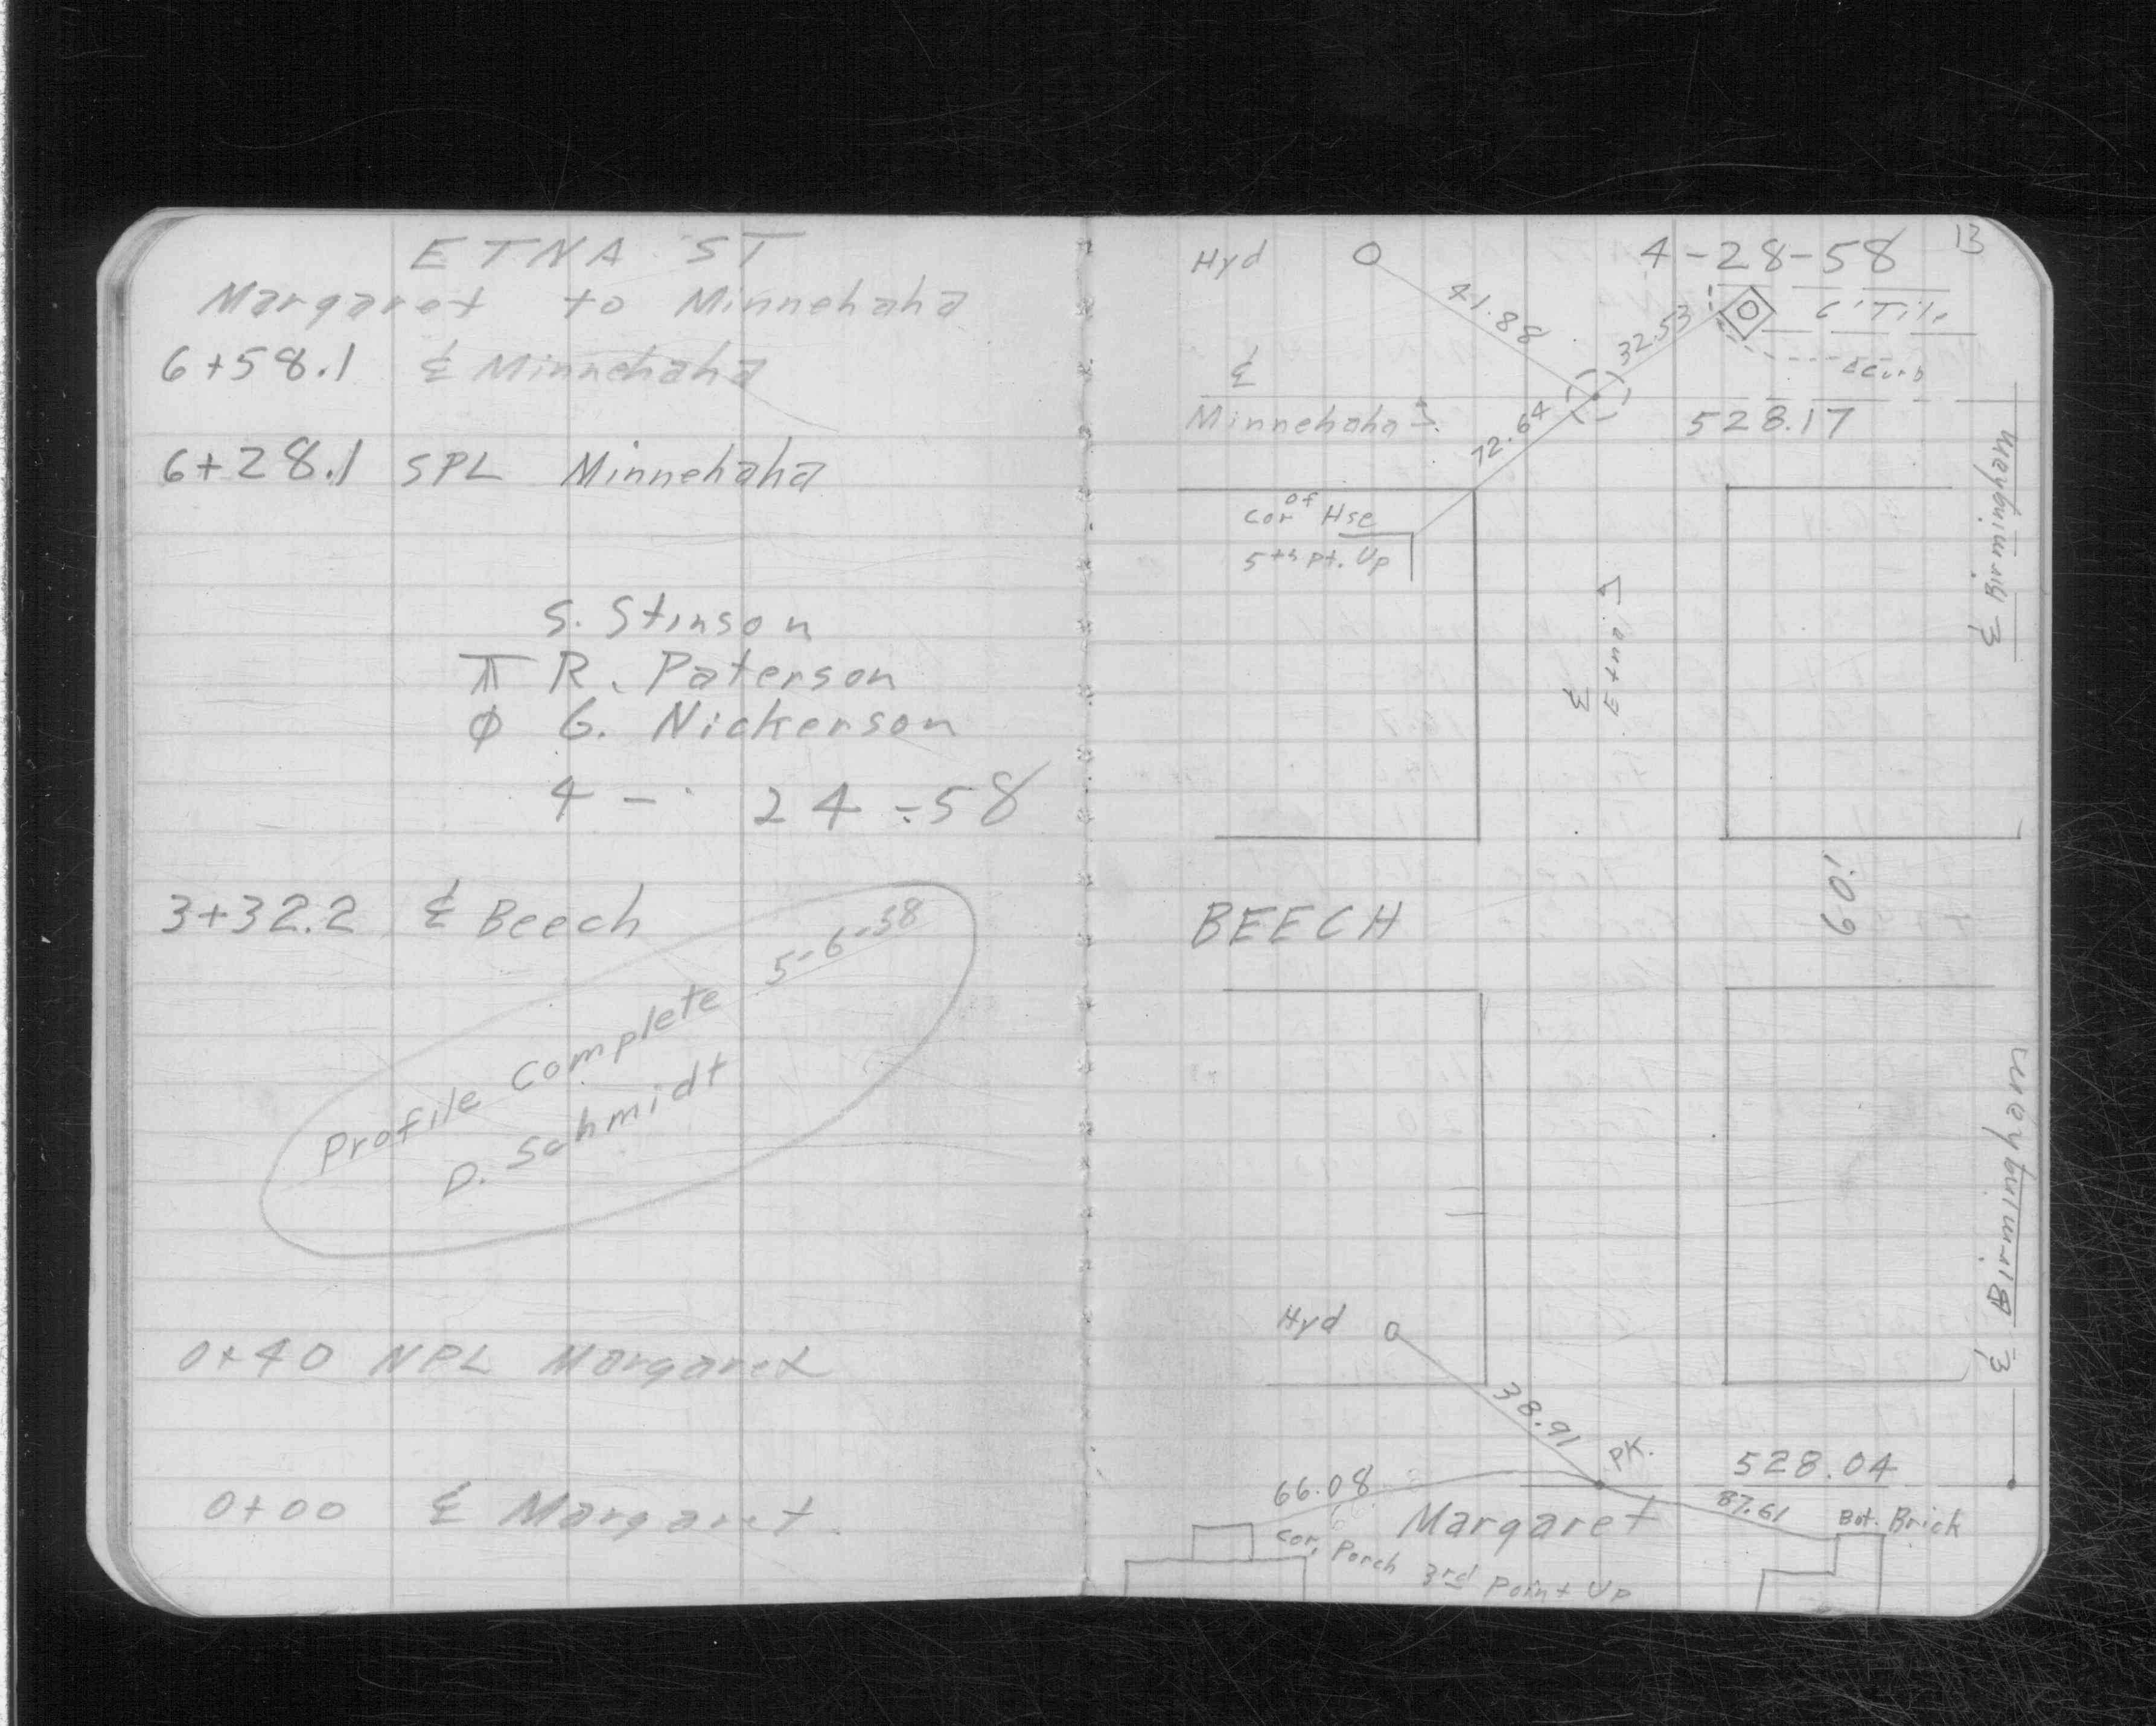 ETNA ST
Margaret to Minnehaha
6+58.1 ℄ Minnehaha
6+28.1 SPL Minnehaha
S. Stinson
⊼ R. Paterson
φ G. Nickerson
4 - 24 - 58
3+32.2 ℄ Beech
Profile Complete 5-6-58
D. Schmidt
0+40 NPL Margaret
0+00 ℄ Margaret
13
Hyd 4-28-58
41.88 32.53
℄
Minnehaha 72.64 528.17
Cor of Hse
5th pt. Up
℄ Birmingham
℄ Etna
BEECH 60'
℄ Birmingham
Hyd
38.91 PK.
66.08 528.04
Margaret 87.61 Bot. Brick
Cor. Porch 3rd Point Up